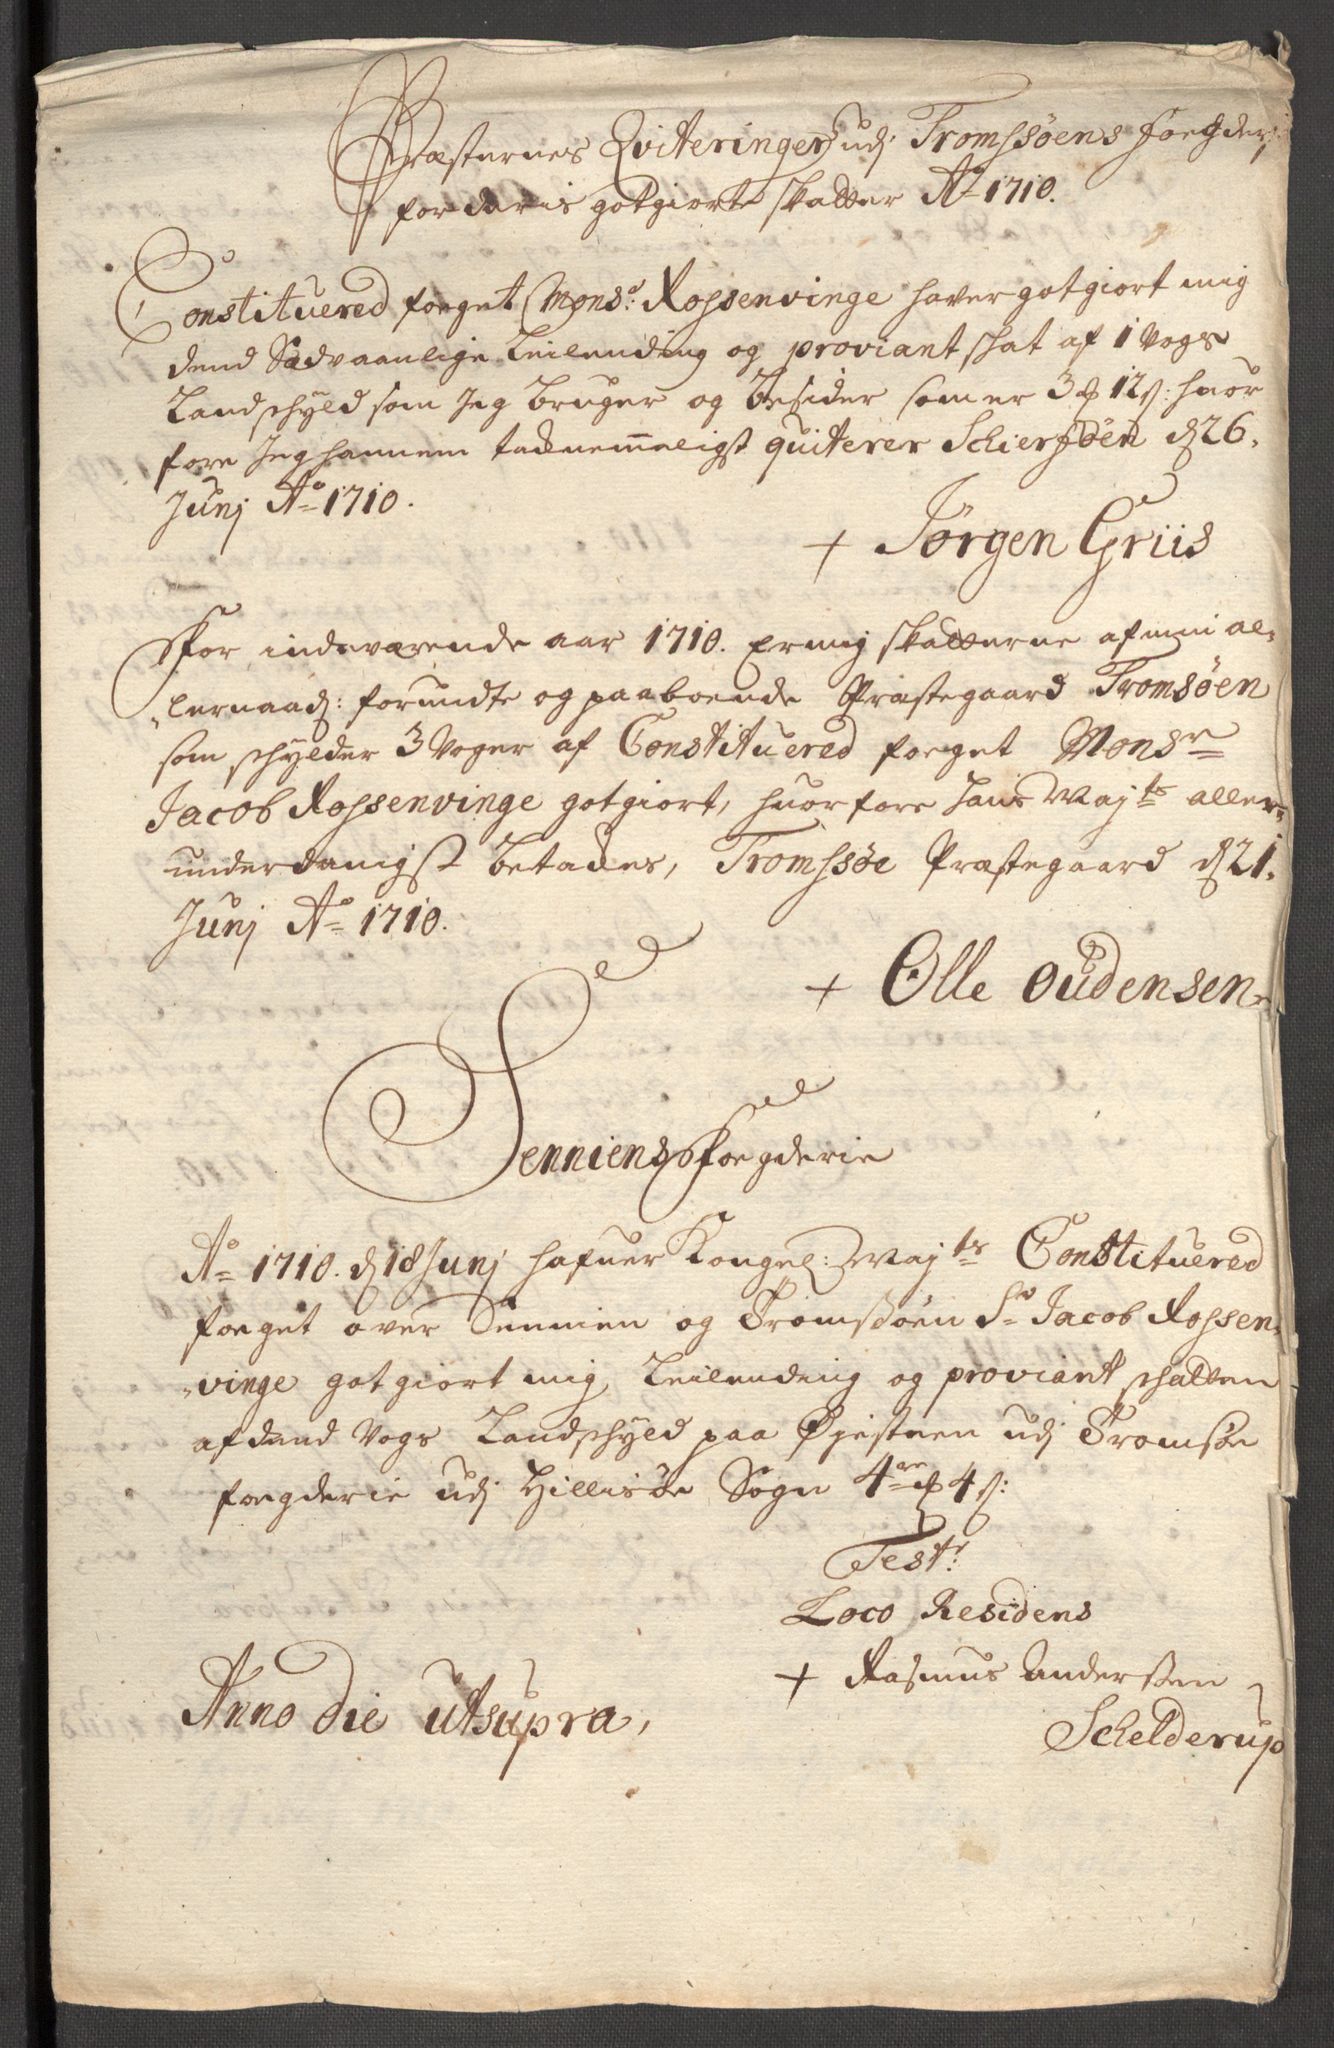 Præsternes Qviteringer udj Tromssøens foegderj
for deris gotgiorte skatter Ao 1710.
Constituered foeget Monsr: Rossenvinge haver gotgiort mig
dend Sædvaanlige Leilending og proviant schat af 1 Vogs
Landschyld som Jeg bruger og besider som er 3 12 s: huor
fore Jeg hannem tacknemmeligst quiterer Schiersöen d 26.
Junj Ao 1710.
+ Jörgen Griis
For indeværende aar 1710. Er mig skatterne af min al-
lernaad: forundte og paaboende Præstegaard Tromsöen
som schylder 3 Voger af Constituered foeget Monsr
Jacob Rossenvinge gotgiort, huorfore Hans Majts aller-
underdanigst betackes, Tromssøe Præstegaard d 21.
Junj Ao 1710.
+ Olle Oudensen
Senniens Foegderie
Ao 1710. d 18 Junj hafuer Kongel: Majts Constituered
foeget over Sennien og Tromsöen Sr Jacob Rossen-
vinge gotgiort mig Leilending og proviant schatten
af dend Vogs Landschyld paa Øjesteen udj Tromsøe
foegderie udj Hillisöe Sogn 4re 4 s:
Testr:
Loco Residens
+ Rasmus Anderssen
Schelderup
Anno die utsupra,